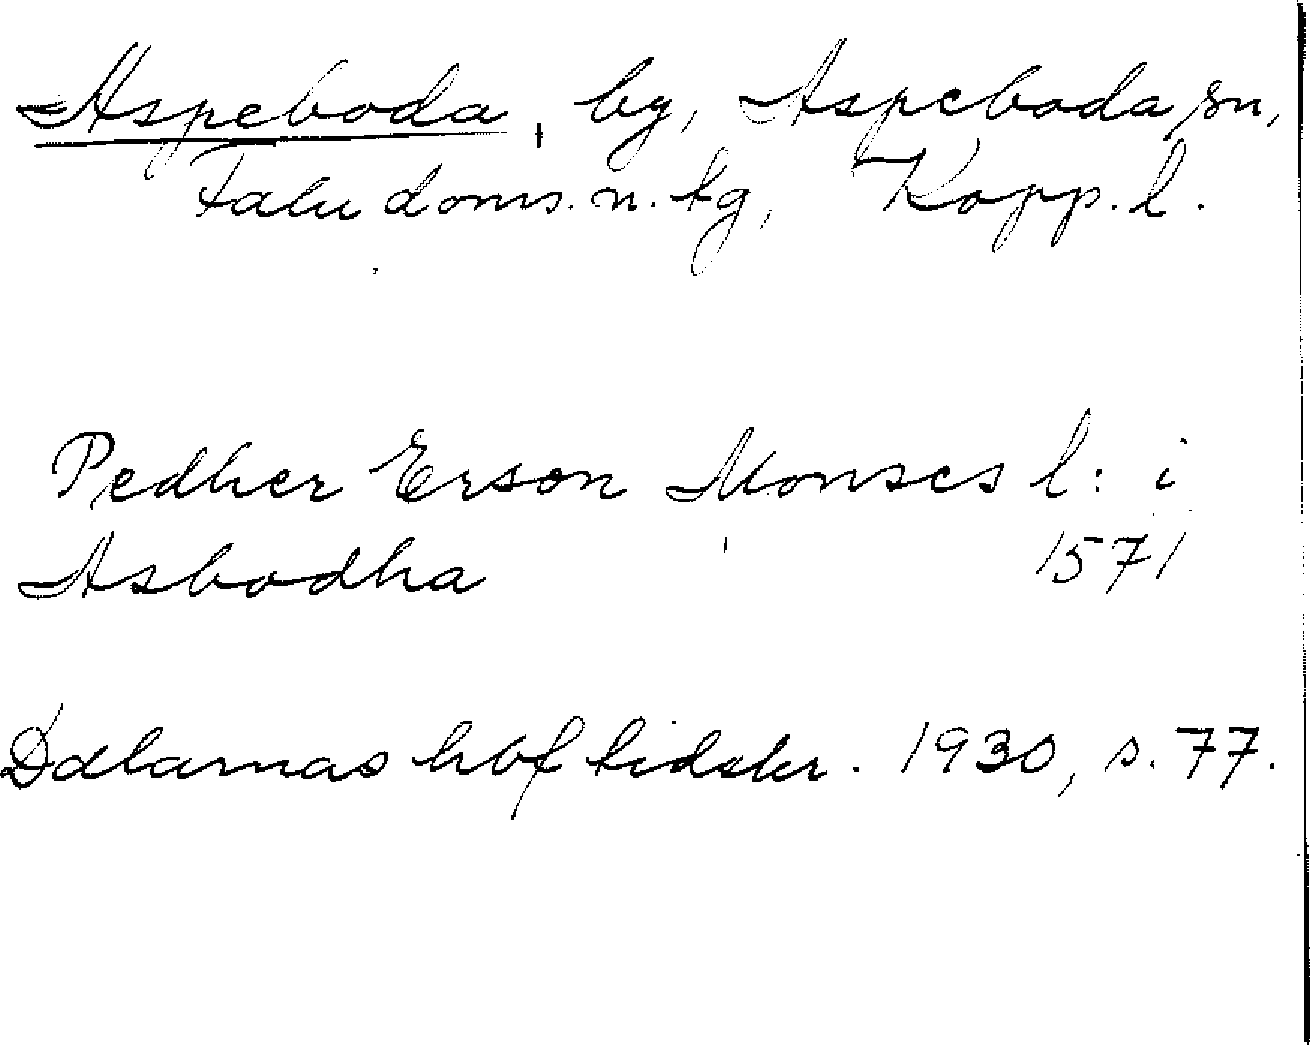 Aspeboda, by, Aspeboda sn,
Falu doms. n. tg, Kopp. l.
Pedher Erson Monses l: i
Asbodha 1571
Dalarnas hbf tidskr. 1930, s. 77.